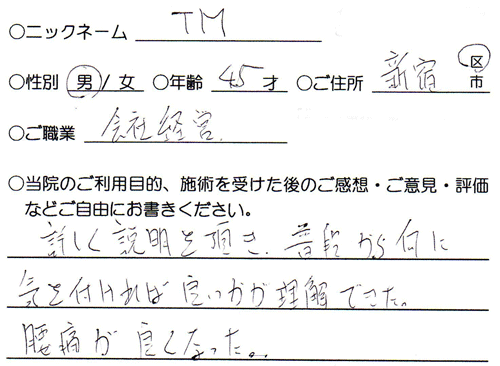 ○ニックネーム TM
○性別 男/女 ○年齢 45才 ○ご住所 新宿 区市
○ご職業 会社経営
○当院のご利用目的、施術を受けた後のご感想・ご意見・評価
などご自由にお書きください。
詳しく説明を頂き、普段から何に
気を付ければ良いかが理解できた。
腰痛が良くなった。